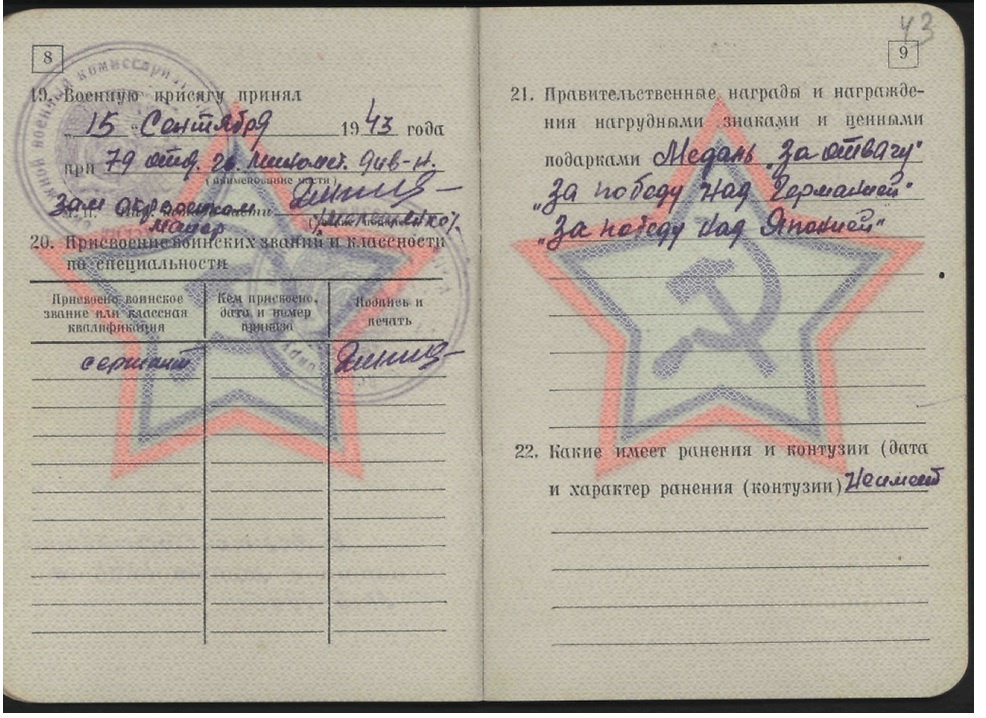 8
19. Военную присягу принял
15 Сентября 1943 года
при 79 отд. гв. миномет. див-н.
(наименование части)
М. П.
майор
20. Присвоение воинских званий и классности
по специальности
Присвоено воинское звание или классная квалификация
Кем присвоено, дата и номер приказа
Подпись и печать
сержант
43
9
21. Правительственные награды и награжде-
ния нагрудными знаками и ценными
подарками Медаль „За отвагу"
„За победу над Германией"
„За победу над Японией"
22. Какие имеет ранения и контузии (дата
и характер ранения (контузии) Неимеет